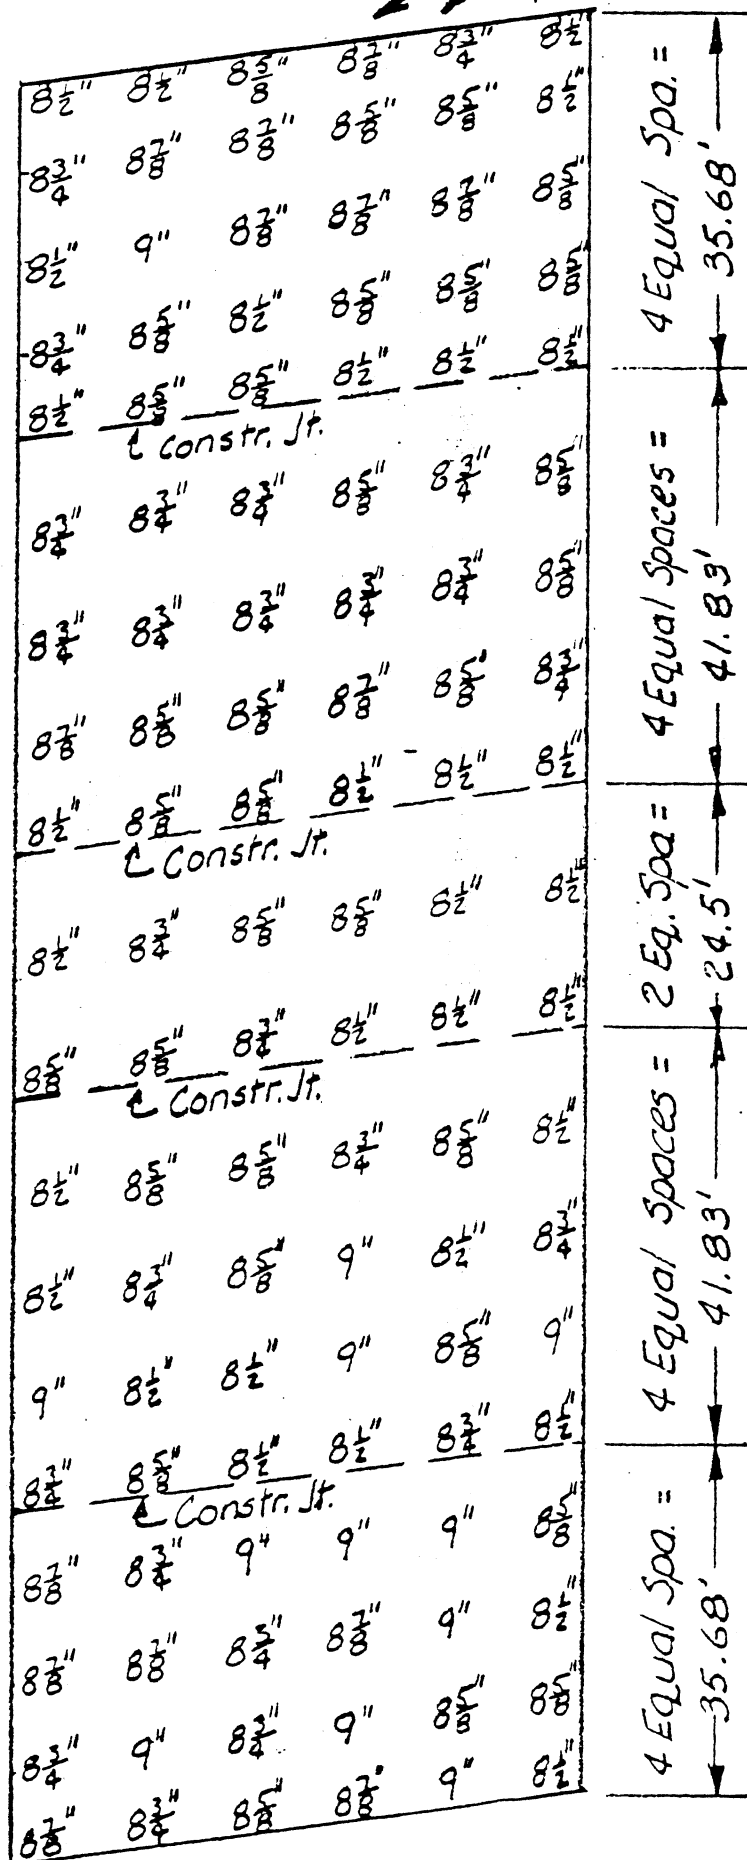 8½" 8½" 8⅝" 8⅞" 8¾" 8½"
8¾" 8⅞" 8⅞" 8⅝" 8⅝" 8½"
8½" 9" 8⅞" 8⅞" 8⅞" 8⅝"
8¾" 8⅝" 8½" 8⅝" 8⅝" 8⅝"
8½" 8⅝" 8⅝" 8½" 8½" 8½"
℄ Constr. Jt.
8¾" 8¾" 8¾" 8⅝" 8¾" 8⅝"
8¾" 8¾" 8¾" 8¾" 8¾" 8⅝"
8⅞" 8⅝" 8⅝" 8⅞" 8⅝" 8¾"
8½" 8⅝" 8⅝" 8½" 8½" 8½"
℄ Constr. Jt.
8½" 8¾" 8⅝" 8⅝" 8½" 8½"
8⅝" 8⅝" 8¾" 8½" 8½" 8½"
℄ Constr. Jt.
8½" 8⅝" 8⅝" 8¾" 8⅝" 8½"
8½" 8¾" 8⅝" 9" 8½" 8¾"
9" 8½" 8½" 9" 8⅝" 9"
8¾" 8⅝" 8½" 8½" 8¾" 8½"
℄ Constr. Jt.
8⅞" 8¾" 9" 9" 9" 8⅝"
8⅞" 8⅞" 8¾" 8⅞" 9" 8½"
8¾" 9" 8¾" 9" 8⅝" 8⅝"
8⅞" 8¾" 8⅝" 8⅞" 9" 8½"
4 Equal Spa. =
35.68'
4 Equal Spaces =
41.83'
2 Eq. Spa =
24.5'
4 Equal Spaces =
41.83'
4 Equal Spa. =
35.68'